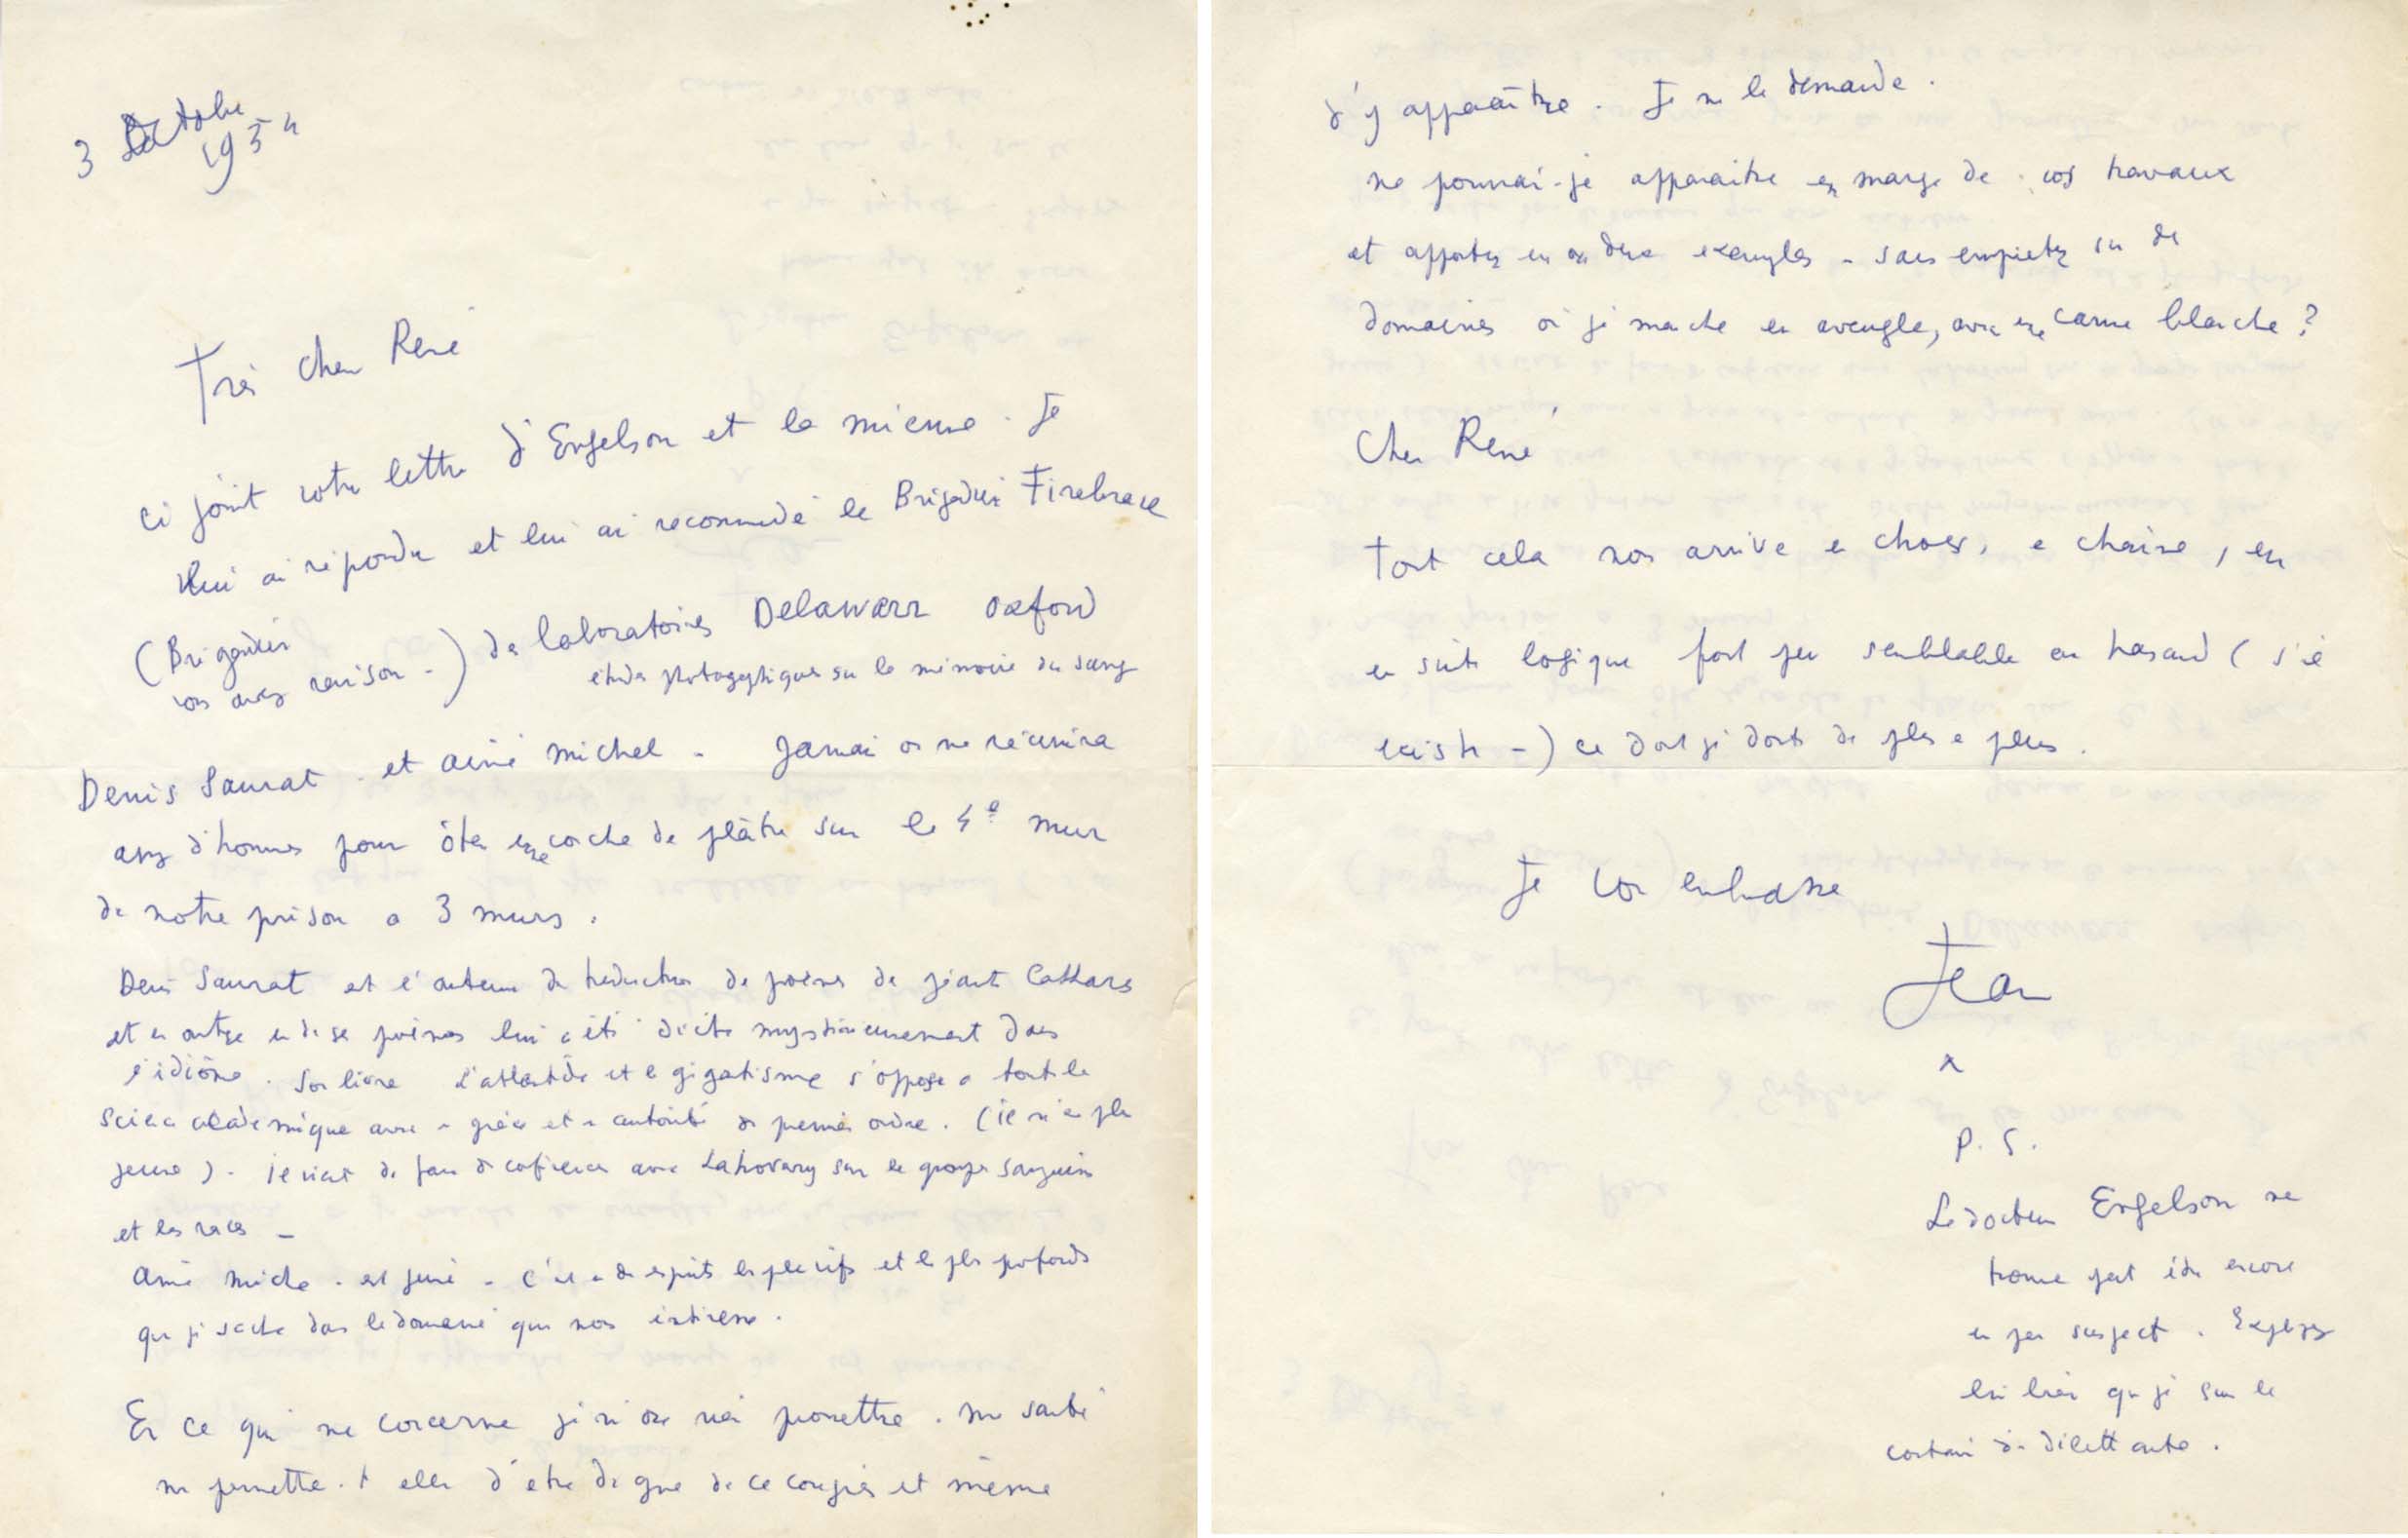 3 Octobre
1954
Très cher René
Ci joint votre lettre d'Engelson et la mienne. Je
lui ai répondu et lui ai recommandé le Brigadier Firebrace
(Brigadier
vous avez raison -) des laboratoires Delawarr Oxford
études photographiques sur la mémoire du sang
Denis Saurat et aimé michel - Jamais on ne réunira
assez d'hommes pour ôter une couche de plâtre sur le 4e mur
de notre prison a 3 murs.
Denis Saurat est l'auteur de traduction de poèmes de géants Cathars
et en outre un de ses poèmes lui a été dicté mystérieusement dans
l'idiôme. Son livre L'atlantide et le gigantisme s'oppose a toute la
science académique avec une grâce et une autorité de premier ordre. (il n'est plus
jeune). il vient de faire des conférences avec Lahovary sur les groupes sanguins
et les races -
aimé michel - est jeune - C'est un des esprits les plus vifs et les plus profonds
que je sache dans le domaine qui nous intéresse.
En ce qui me concerne je n'ose rien promettre. Ma santé
me permettra-t elle d'être digne de ce congrès et même
d'y apparaître. Je me le demande.
ne pourrai-je apparaitre en marge de vos travaux
et apporter un ou deux exemples - sans empieter sur des
domaines où je marche en aveugle, avec une canne blanche?
Cher René
tout cela nous arrive en choeur, en chaine, en
une suite logique fort peu semblable au hasard (s'il
existe -) ce dont je doute de plus en plus.
Je vous embrasse
Jean
P. S.
Le docteur Engelson me
trouve peut être encore
un peu suspect. Expliquez
lui bien que je suis le
contraire d'un dilettante.